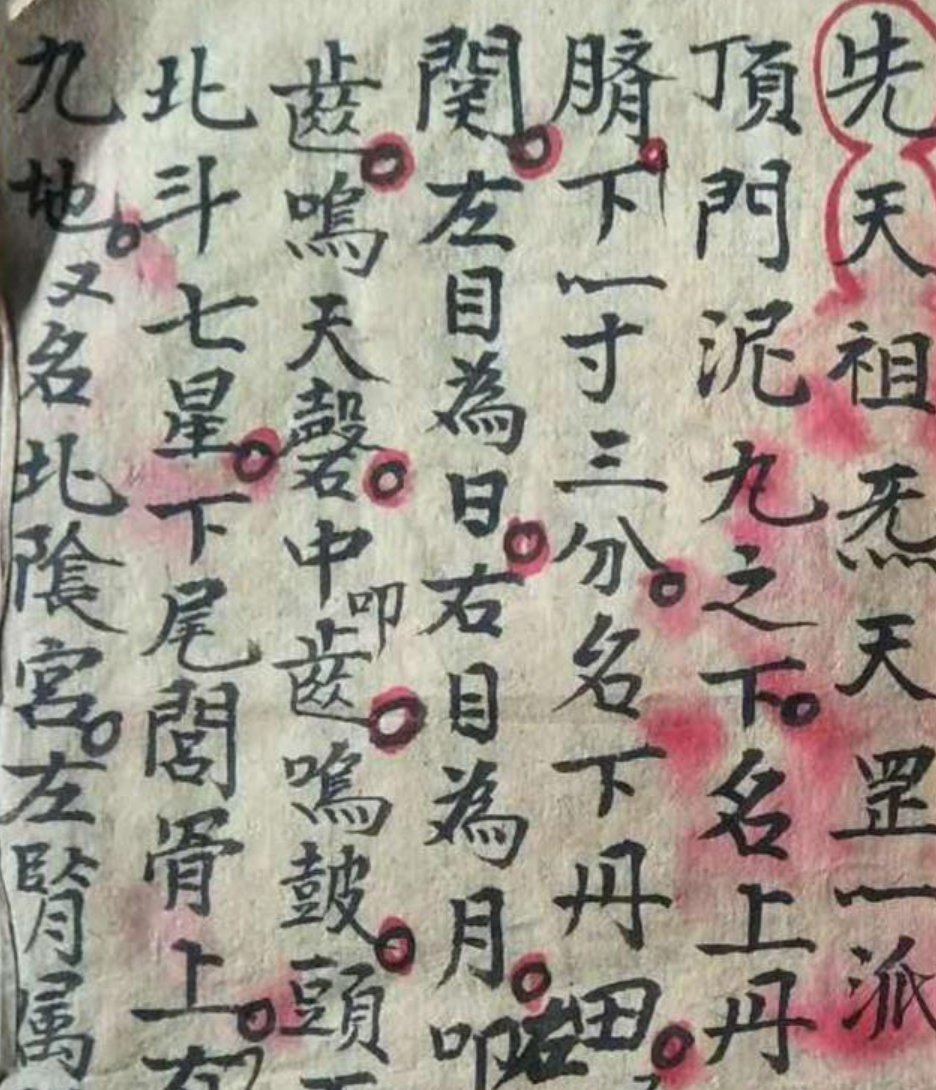 先天祖炁天罡一派
頂門泥九之下。名上丹
臍下一寸三分。名下丹田。
関。左目為日。右目為月。叩左
齒。鳴天磬。中叩齒。鳴鼓。頭
北斗七星。下尾閭骨上。左
九地。又名北陰宮。左腎属